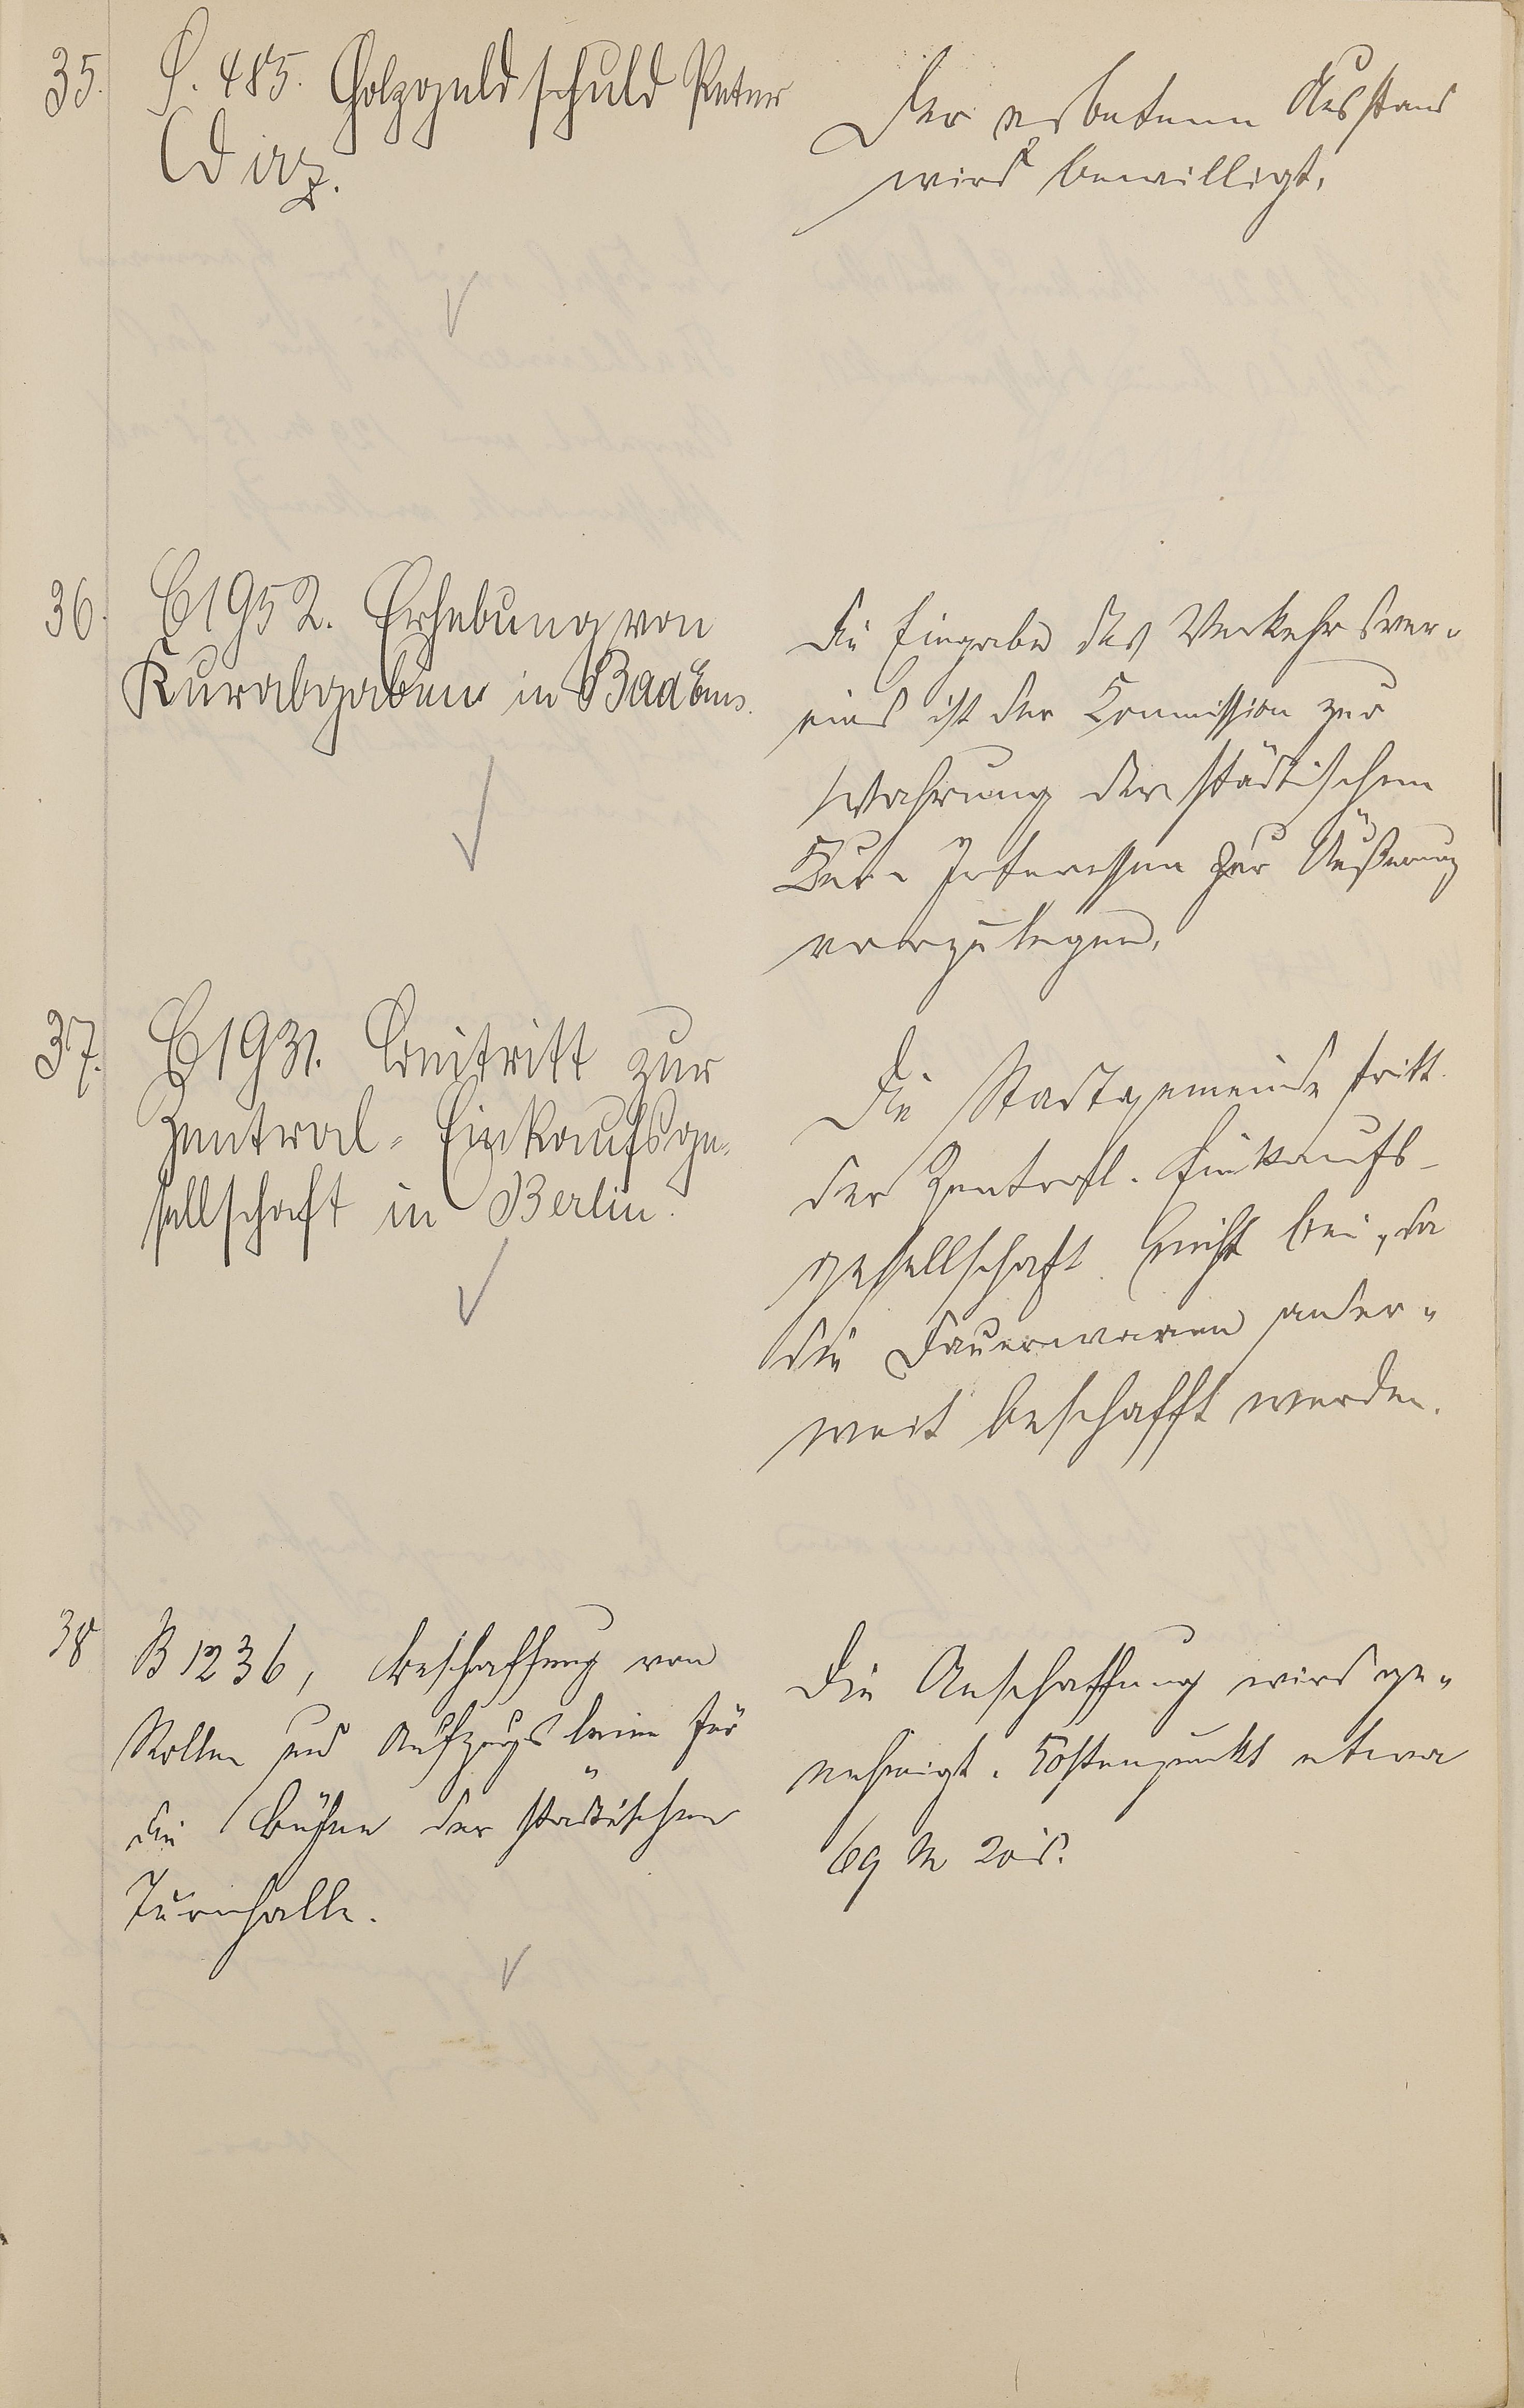 35.
S. 485. Holzgeldschuld Peter
Dirz.
Der erbetene Ausstand
wird bewilligt.
36.
C 1952. Erhebung von
Kurabgaben in Bad Ems.
Die Eingabe des Verkehrsver-
eins ist der Kommission zur
Wahrung der städtischen
Kur- Interessen zur Äußerung
vorzulegen.
37.
C 1931. Beitritt zur
Zentral- Einkaufsge-
sellschaft in Berlin.
Die Stadtgemeinde tritt
der Zentral-Einkaufs-
gesellschaft nicht bei, da
die Dauerwaren ander-
weit beschafft werden.
38
B 1236, Beschaffung von
Rollen und Aufzugsleine für
die Bühne der städtischen
Turnhalle.
Die Anschaffung wird ge-
nehmigt. Kostenpunkt etwa
69 M 20 d.